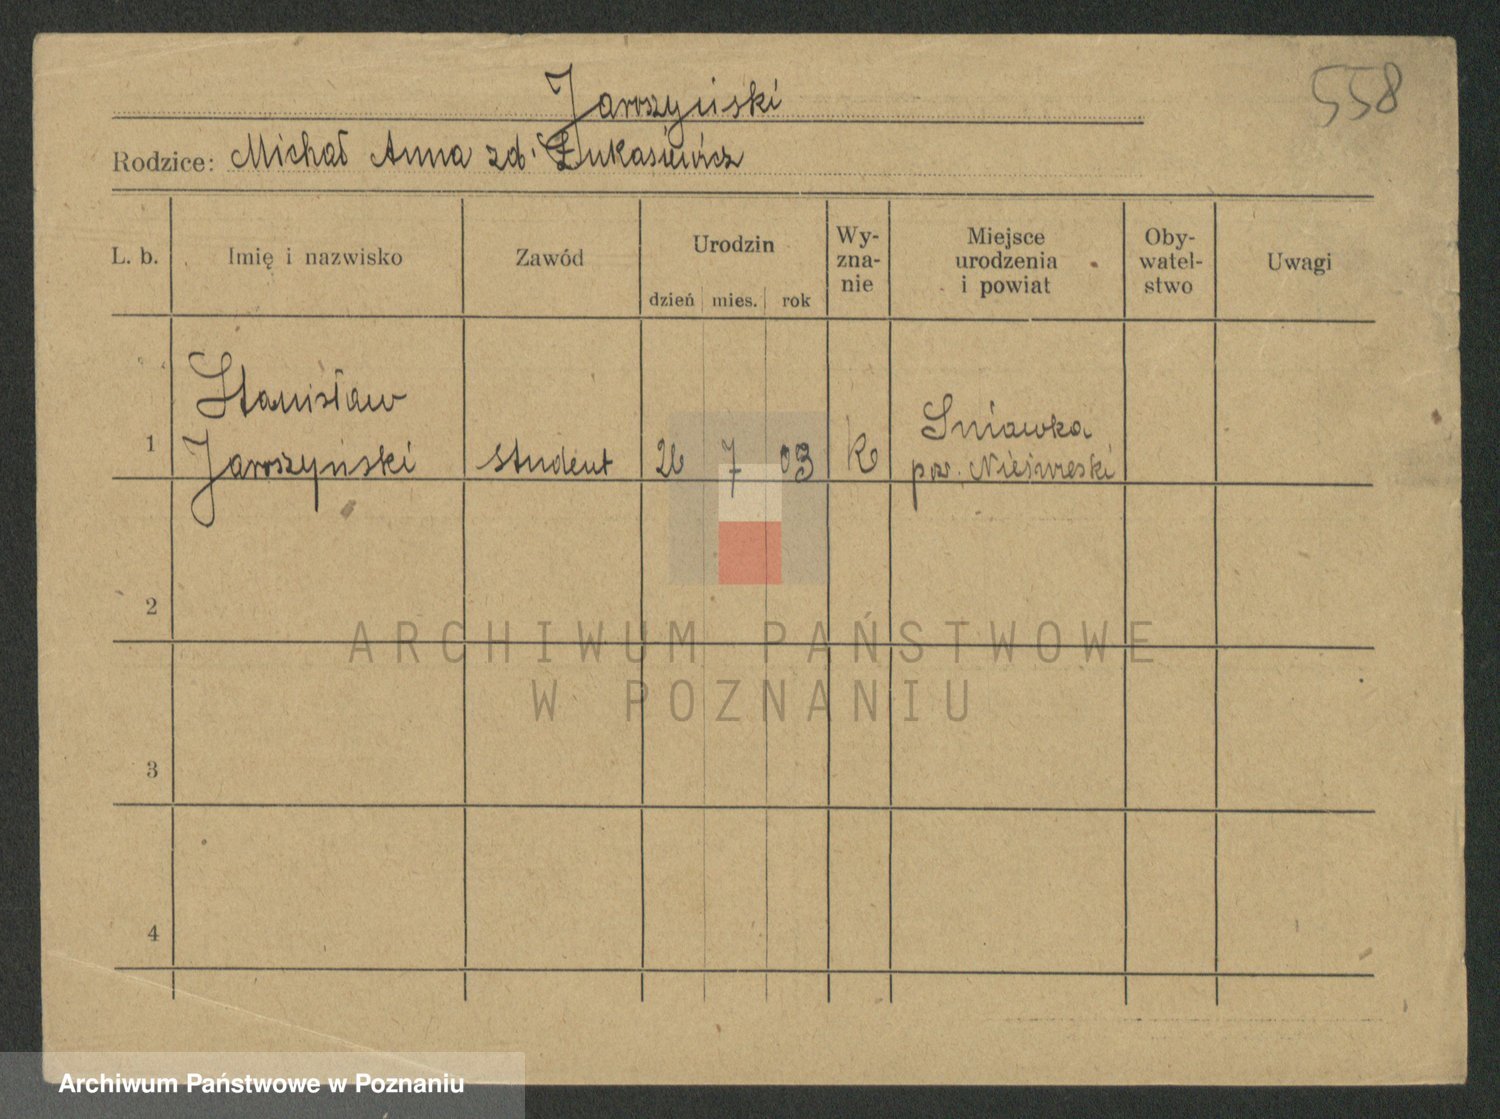 558
Jaroszyński
Rodzice: Michał Anna zd. Łukasiewicz
L. b. Imię i nazwisko Zawód Urodzin dzień mies. rok Wy-zna-nie Miejsce urodzenia i powiat Oby-watel-stwo Uwagi
1 Stanisław Jaroszyński student 26 7 03 k Sniawka pow. Nieświeski
2
3
4
ARCHIWUM PAŃSTWOWE
W POZNANIU
Archiwum Państwowe w Poznaniu